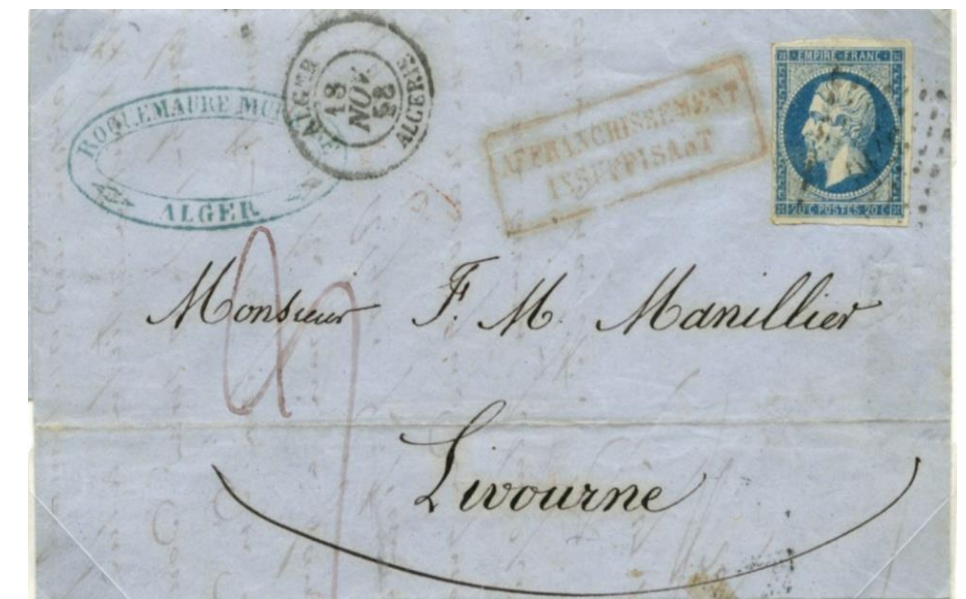 ROQUEMAURE
ALGER
ALGER
18
NOV
58
ALGERIE
AFFRANCHISSEMENT
INSUFFISANT
EMPIRE FRANC
20 C POSTES 20 C
Monsieur F. M. Manillier
Livourne